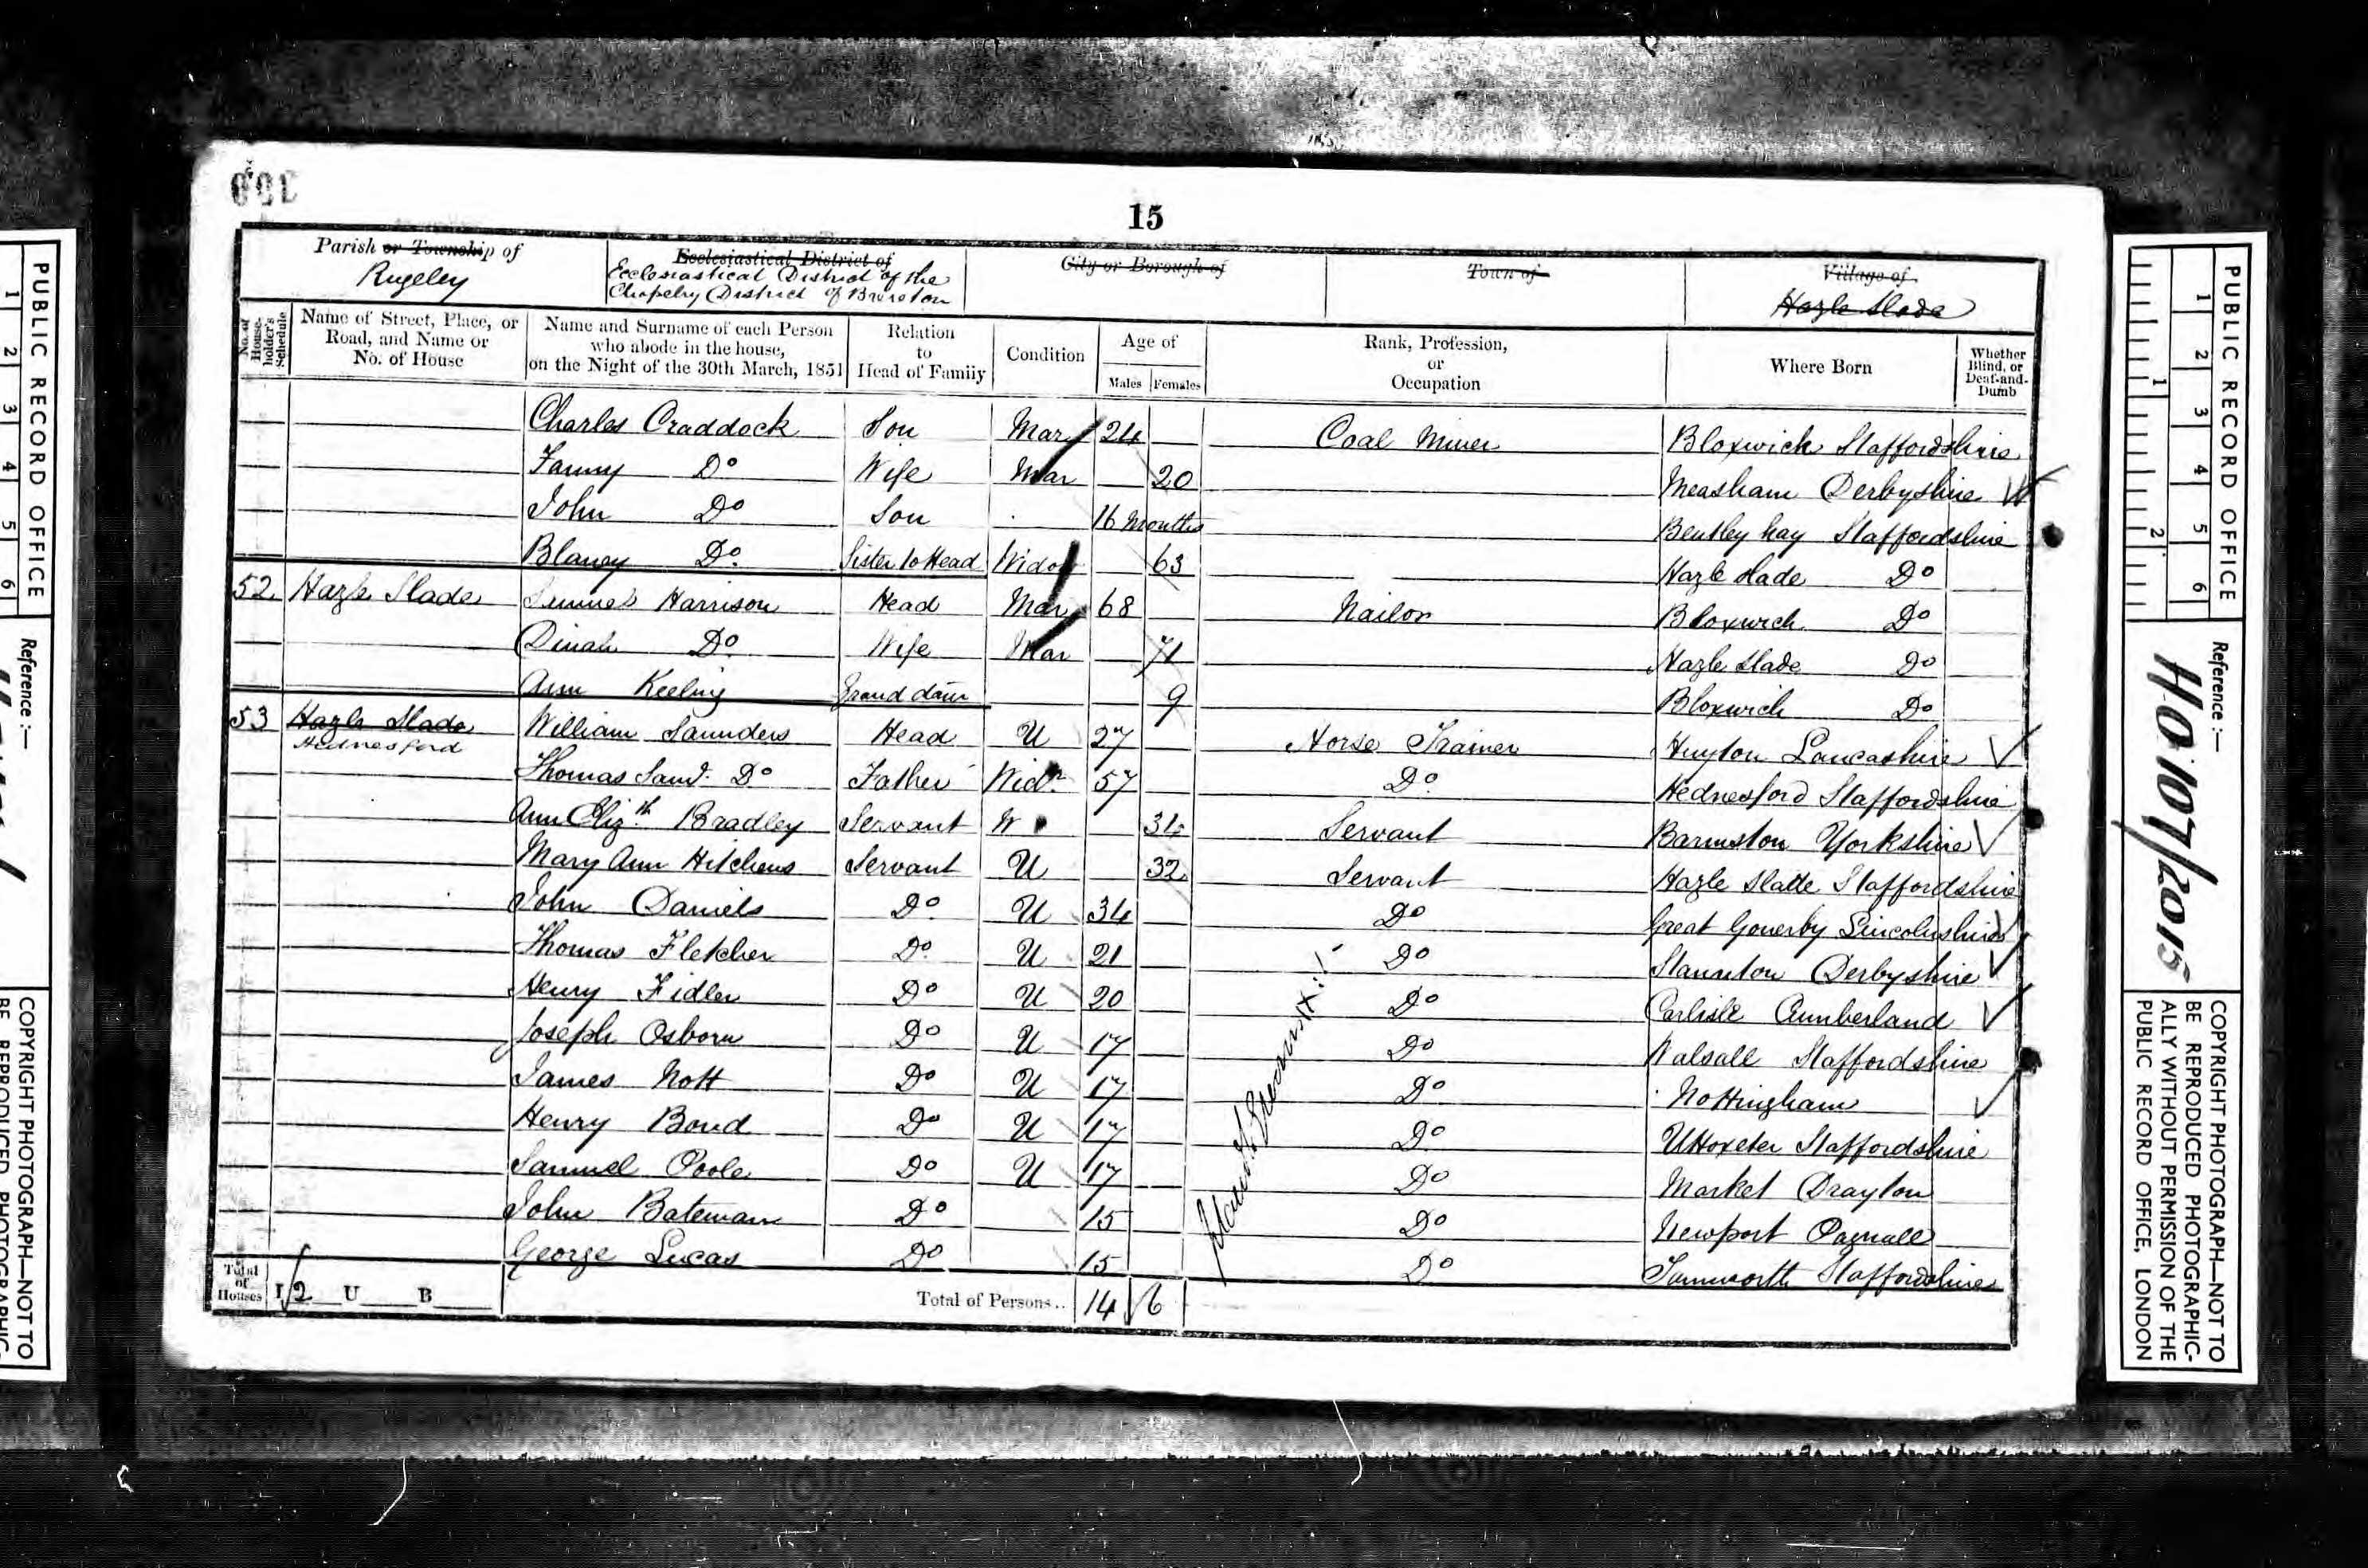 15
Parish or Township of
Rugeley
Ecclesiastical District of
Ecclesiastical District of the
Chapelry District of Brereton
City or Borough of
Town of
Village of
Hazle Slade
No. of House-holder's Schedule
Name of Street, Place, or Road, and Name or No. of House
Name and Surname of each Person who abode in the house, on the Night of the 30th March, 1851
Relation to Head of Family
Condition
Age of
Males Females
Rank, Profession, or Occupation
Where Born
Whether Blind, or Deaf-and-Dumb
Charles Craddock Son Mar 24 Coal Miner Bloxwich Staffordshire
Fanny Do Wife Mar 20 Measham Derbyshire
John Do Son 16 Months Bentley hay Staffordshire
Blaney Do Sister to Head Widow 63 Hazle Slade Do
52 Hazle Slade Harrison Head Mar 68 Nailor Bloxwich Do
Dinah Do Wife Mar 71 Hazle Slade Do
Ann Keeling Grand daur 9 Bloxwich Do
53 Hazle Slade William Saunders Head U 27 Horse Trainer Huyton Lancashire
Hednesford
Thomas Saml Do Father Widr 57 Do Hednesford Staffordshire
Ann Elizth Bradley Servant W 34 Servant Barmston Yorkshire
Mary Ann Hitchens Servant U 32 Servant Hazle Slade Staffordshire
John Daniels Do U 34 Do Great Gonerby Lincolnshire
Thomas Fletcher Do U 21 Do Staunton Derbyshire
Henry Fidler Do U 20 Do Carlisle Cumberland
Joseph Osborn Do U 17 Do Walsall Staffordshire
James Nott Do U 17 Do Nottingham
Henry Bond Do U 17 Do Uttoxeter Staffordshire
Samuel Poole Do U 17 Do Market Drayton
John Bateman Do 15 Do Newport Pagnall
George Lucas Do 15 Do Tamworth Staffordshire
Total of Houses I 2 U B
Total of Persons.. 14 6
PUBLIC RECORD OFFICE
1 2 3 4 5 6
1 2
Reference :-
HO 107/2015
COPYRIGHT PHOTOGRAPH—NOT TO
BE REPRODUCED PHOTOGRAPHIC-
ALLY WITHOUT PERMISSION OF THE
PUBLIC RECORD OFFICE, LONDON
PUBLIC RECORD OFFICE
1 2 3 4 5 6
Reference :-
COPYRIGHT PHOTOGRAPH—NOT TO
BE REPRODUCED PHOTOGRAPHIC-